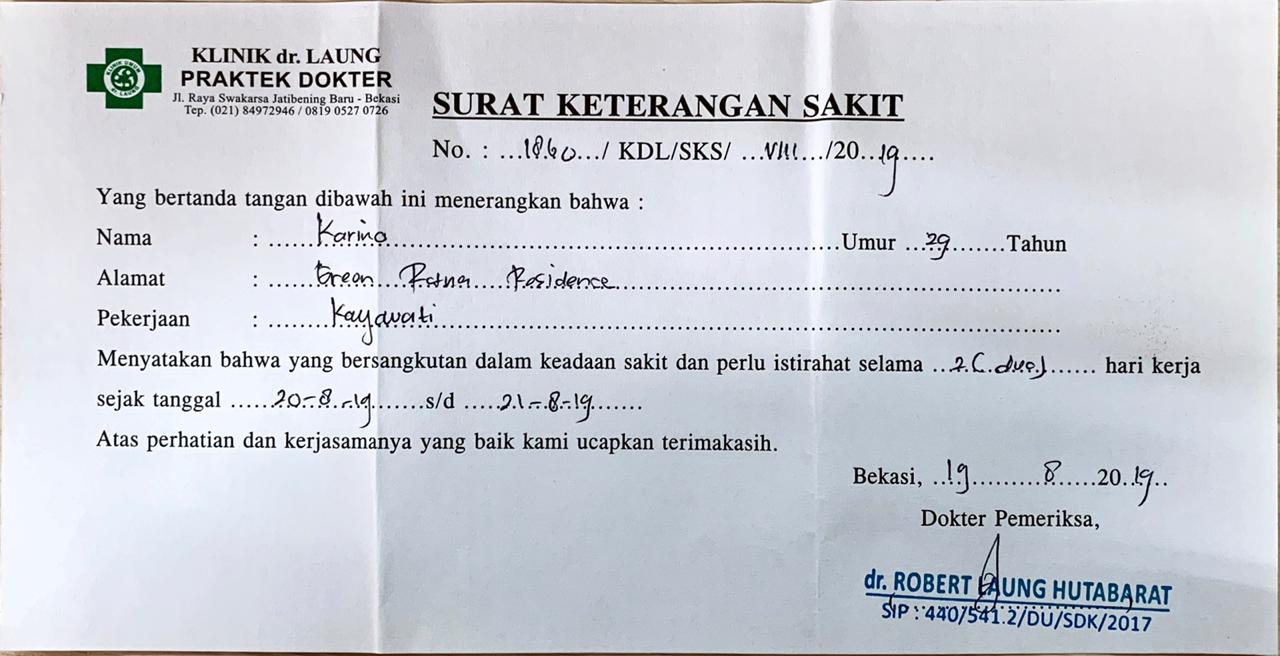 KLINIK dr. LAUNG
PRAKTEK DOKTER
Jl. Raya Swakarsa Jatibening Baru - Bekasi
Tep. (021) 84972946 / 0819 0527 0726
SURAT KETERANGAN SAKIT
No. : ...1860.../ KDL/SKS/ ...VIII.../20..19....
Yang bertanda tangan dibawah ini menerangkan bahwa :
Nama : Karina Umur ...29.......Tahun
Alamat : Green Ratna Residence
Pekerjaan : Kayawati
Menyatakan bahwa yang bersangkutan dalam keadaan sakit dan perlu istirahat selama ..2.(.dua.)...... hari kerja
sejak tanggal ......20-8-19.......s/d .....21-8-19......
Atas perhatian dan kerjasamanya yang baik kami ucapkan terimakasih.
Bekasi, ..19..........8......20..19..
Dokter Pemeriksa,
dr. ROBERT LAUNG HUTABARAT
SIP : 440/541.2/DU/SDK/2017